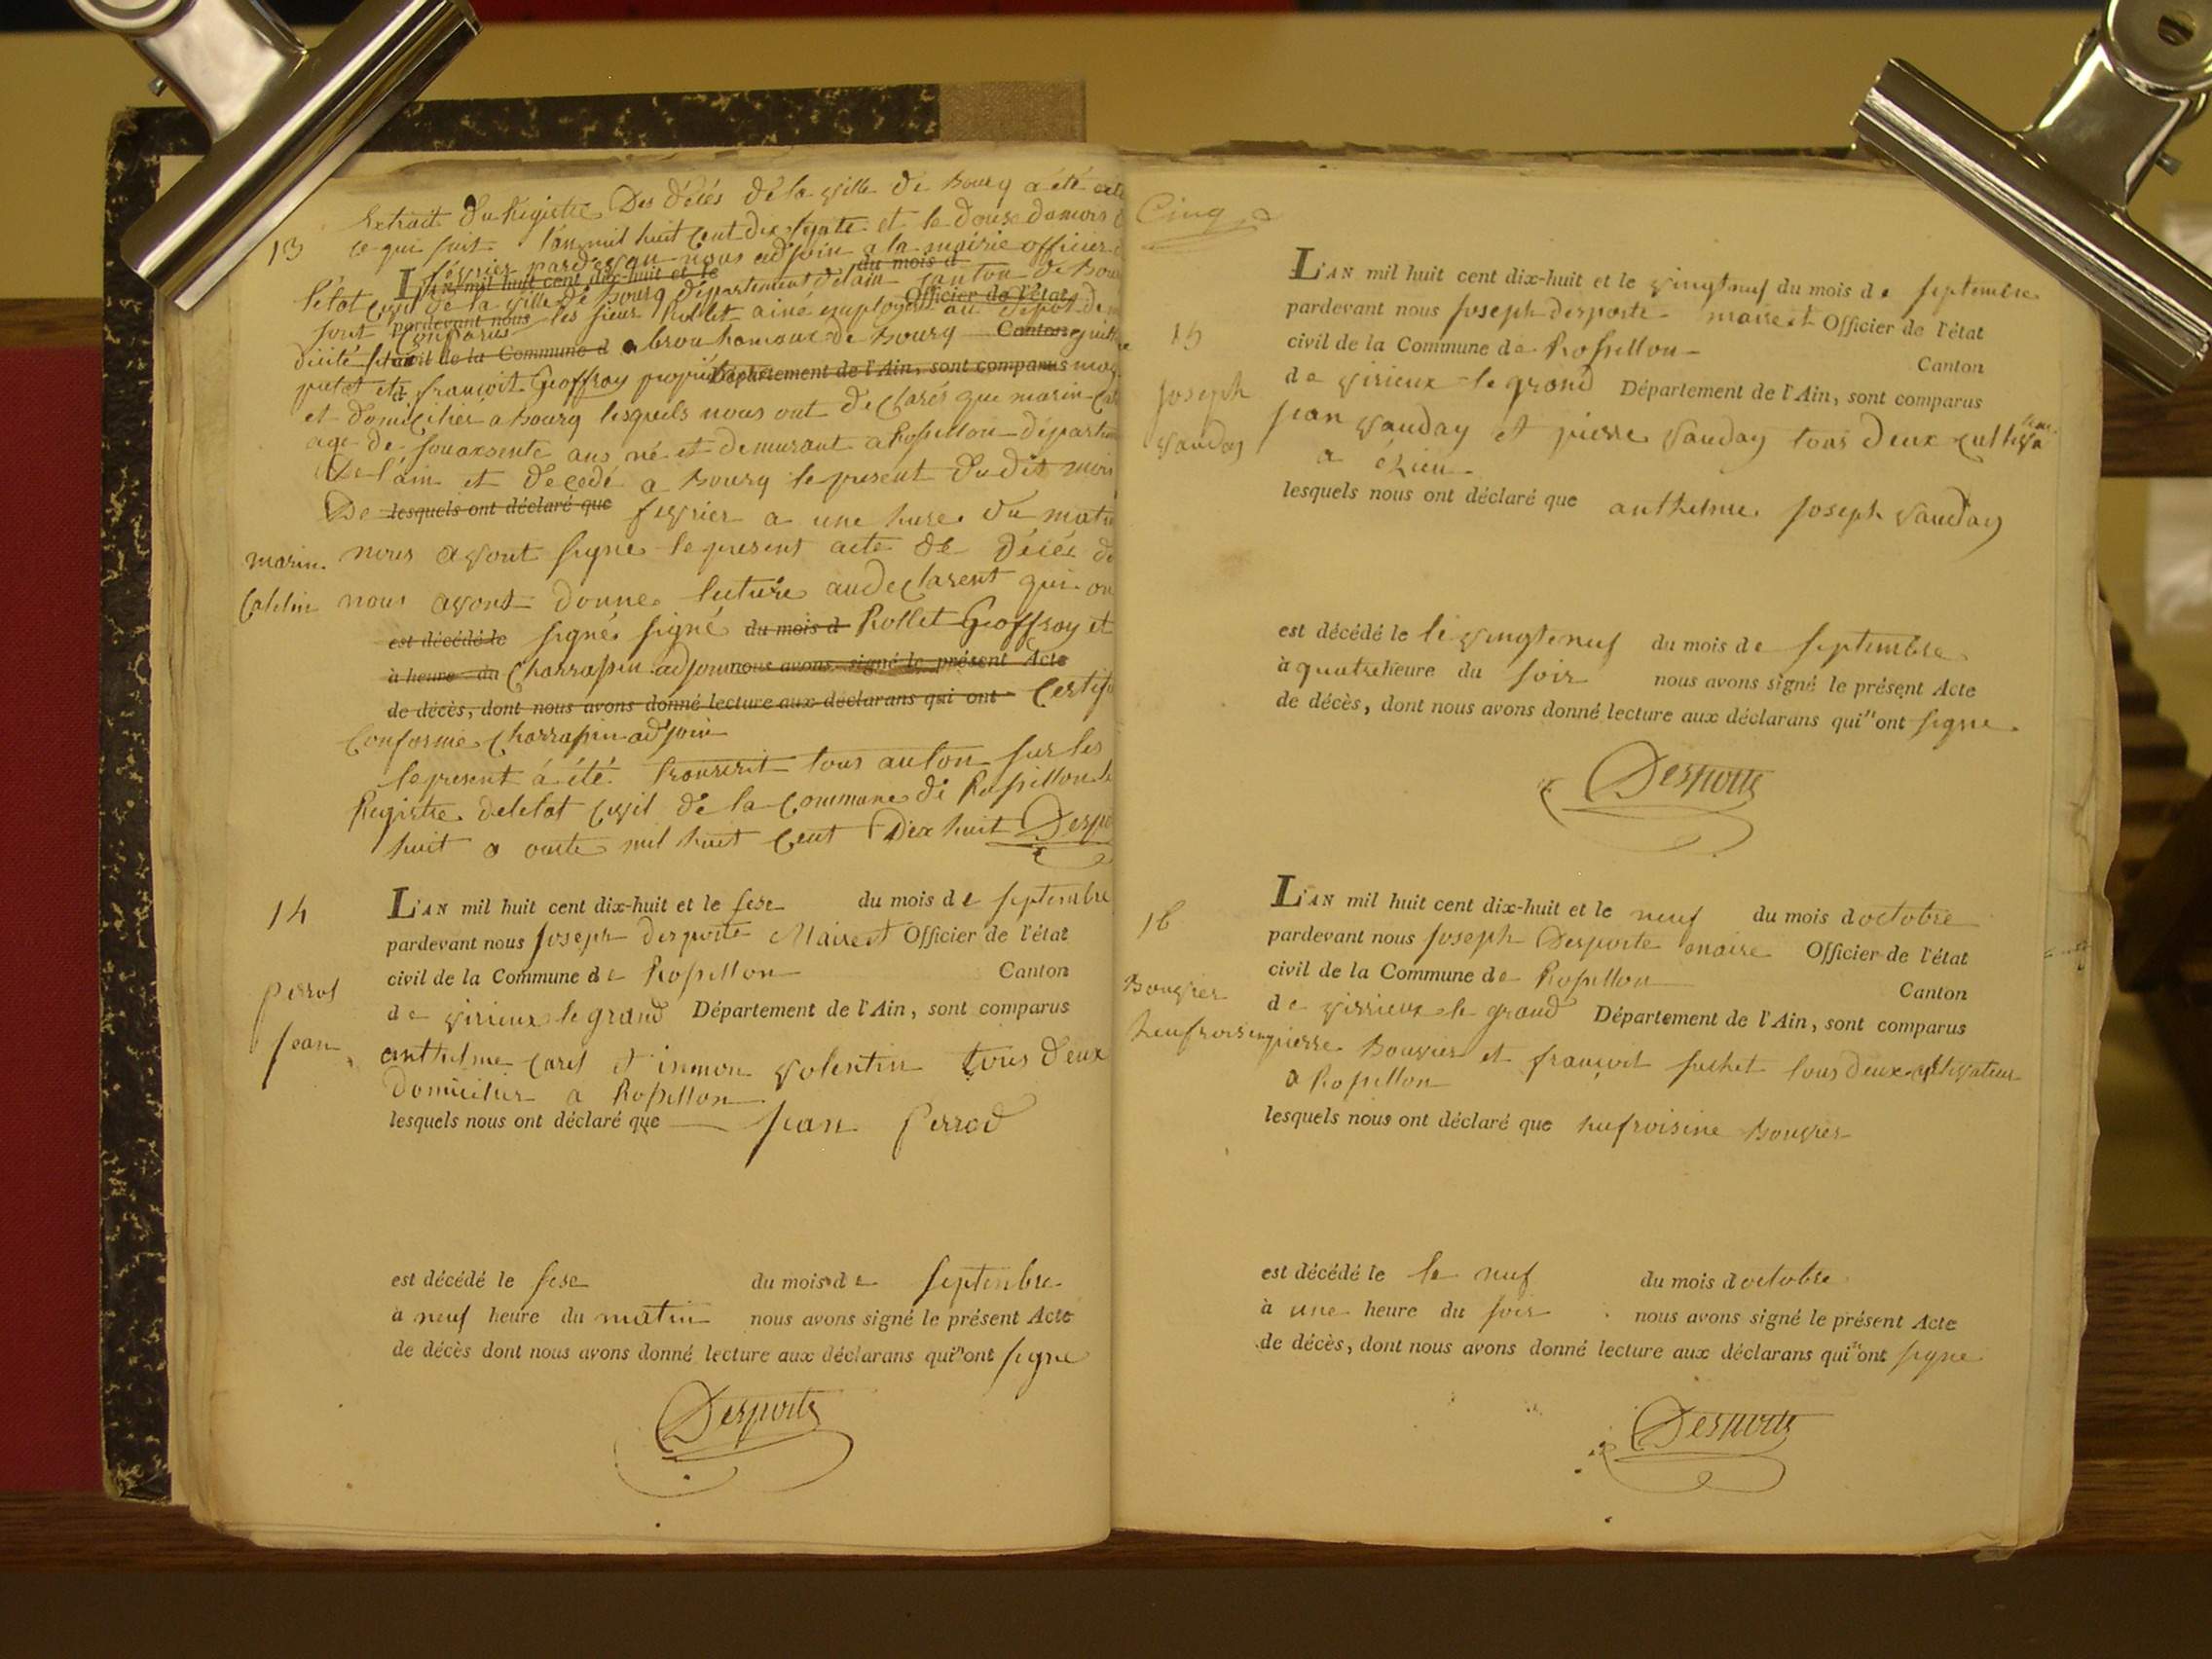 Extrait du Registre Des décés dela ville de Bourg a été
13
ce qui suit l'an mil huit Cent dix et le douse
février pardevan nous adjoin a la mairie officier
L'an mil huit cent dix-huit et le du mois d
l'etat civil de la ville de Bourg département delain canton de
Officier de l'état
pardevant nous
sont comparus les sieur Rollet ainé employé au Dépot de
civil de la Commune d Bourg Canton
et françoit Geoffray Département de l'Ain, sont comparus
et domicilies a Bourg lesquels nous ont declarés que marin
age de ans né et demurant a Rossillon
De l'ain et decedé a Bourg le present du dit mois
De lesquels ont déclaré que fevrier a une hure du
marin nous avont signe le present acte de décés
nous avont donne lecture au declarent qui
est décédé le signé signé du mois d Rollet Geoffray et
à heure du Charrassin adjoin nous avons signé le présent Acte
de décès, dont nous avons donné lecture aux déclarans qui ont
Conforme Charrassin adjoin
le present a été sur les
Registre deletat civil de la Commune de Rossillon
huit mil huit Cent Dix huit
14
L'an mil huit cent dix-huit et le sese du mois de septembre
pardevant nous Joseph desporte Maire et Officier de l'état
civil de la Commune de Rossillon Canton
Perrod
de virieux le grand Département de l'Ain, sont comparus
Jean
anthelme Carel et volentin tous deux
Domicilies a Rossillon
lesquels nous ont déclaré que Jean Perrod
est décédé le sese du mois de septembre
à neuf heure du matin nous avons signé le présent Acte
de décès dont nous avons donné lecture aux déclarans qui n'ont signe
Desporte
Cinq
L'an mil huit cent dix-huit et le vingtneuf du mois de septembre
pardevant nous Joseph desporte maire et Officier de l'état
15
civil de la Commune de Rossillon
Canton
de virieux le grand Département de l'Ain, sont comparus
Joseph
vauday
jean vauday et pierre vauday tous deux
a
lesquels nous ont déclaré que anthelme Joseph vauday
est décédé le le vingtneuf du mois de septembre
à quatre heure du soir nous avons signé le présent Acte
de décès, dont nous avons donné lecture aux déclarans qui n'ont signe
Desporte
L'an mil huit cent dix-huit et le neuf du mois d octobre
16
pardevant nous Joseph Desporte maire Officier de l'état
civil de la Commune de Rossillon
Canton
Bouvier
de virrieux le grand Département de l'Ain, sont comparus
pierre Bouvier et françoit suchet tous deux cultivateur
a Rossillon
lesquels nous ont déclaré que hufroisine Bouvier
est décédé le le neuf du mois d octobre
à une heure du soir nous avons signé le présent Acte
de décès, dont nous avons donné lecture aux déclarans qui n'ont signe
Desporte